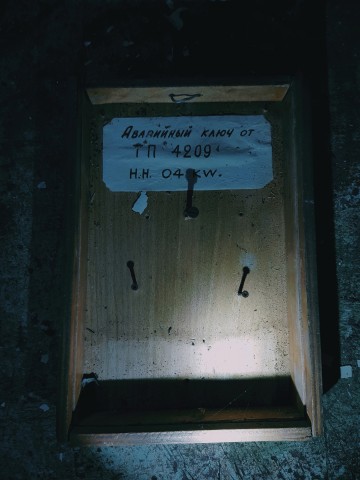 Аварийный ключ от
ТП 4209
Н.Н. 04 KW.